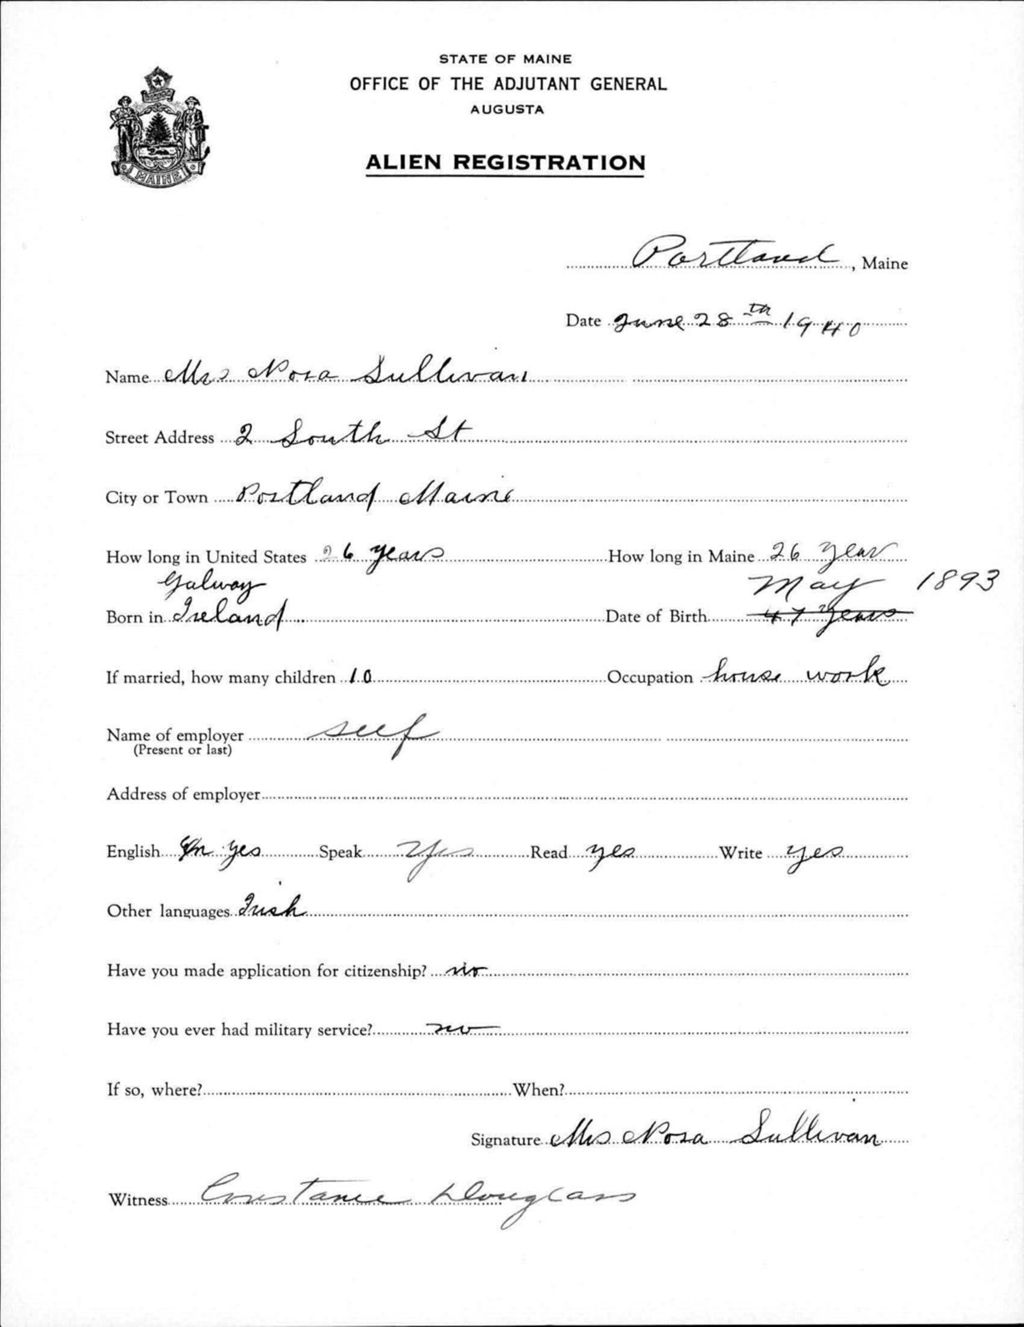 STATE OF MAINE
OFFICE OF THE ADJUTANT GENERAL
AUGUSTA
MAINE
ALIEN REGISTRATION
Portland, Maine
Date June 28th 1940
Name Mrs Nora Sullivan
Street Address 2 South St
City or Town Portland Maine
How long in United States 26 years How long in Maine 26 year
Galway May 1893
Born in Ireland Date of Birth 47 years
If married, how many children 10 Occupation house work
Name of employer self
(Present or last)
Address of employer
English yes Speak yes Read yes Write yes
Other languages Irish
Have you made application for citizenship? no
Have you ever had military service? no
If so, where? When?
Signature Mrs Nora Sullivan
Witness Constance Douglass